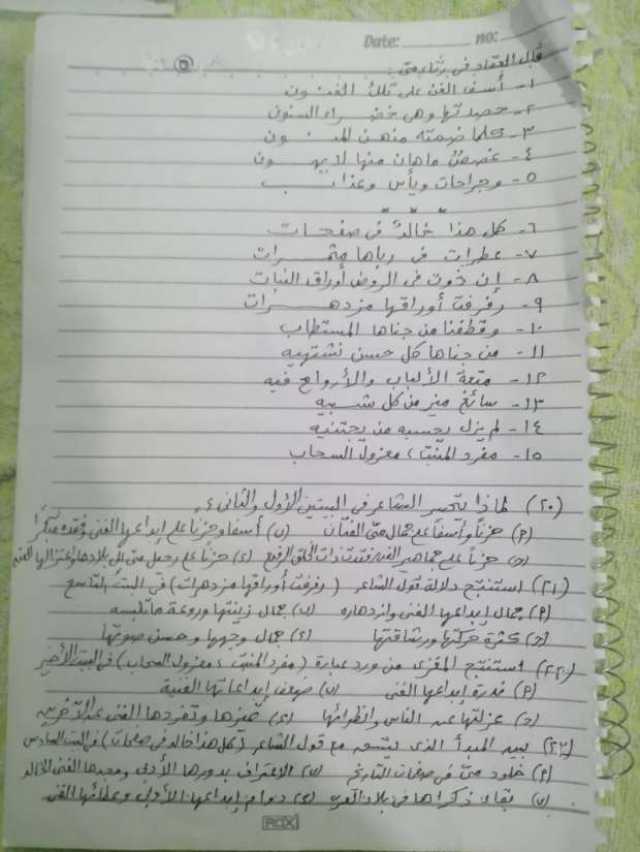 Date: no:
قال العقاد في رثاء مي:
١- أسف الفن على تلك الفنون
٢- حصدتها وهي خضراء السنون
٣- كلما ضمته منهن المنون
٤- غصص ما هان منها لا يهون
٥- وجراحات ويأس وعذاب
٦- كل هذا خالد في صفحات
٧- عطرات في رباها مثمرات
٨- إن ذوت في الروض أوراق النبات
٩- رفرفت أوراقها مزدهرات
١٠- وقطفنا من جناها المستطاب
١١- من جناها كل حسن نشتهيه
١٢- متعة الألباب والأرواح فيه
١٣- سائغ ميز من كل شبيه
١٤- لم يزل يحسبه من يجتنيه
١٥- مفرد المنبت، معزول السحاب
(٢٠) لماذا يتحسر الشاعر في البيتين الأول والثاني؟
(أ) حزنا وأسفا على جمال مي الفتان (ب) أسفا وحزنا على إبداعها الفني وفقده مبكرا
(ج) حزنا على جماهير الفن فقدت ذات الخلق الرفيع (د) حزنا على رحيل مي إلى بلادها واعتزالها الفن
(٢١) استنتج دلالة قول الشاعر (رفرفت أوراقها مزدهرات) في البيت التاسع
(أ) جمال إبداعها الفني وازدهاره (ب) جمال زينتها وروعة ملابسه
(ج) كثرة حركتها ورشاقتها (د) جمال وجهها وحسن صوتها
(٢٢) استنتج المغزى من ورود عبارة (مفرد المنبت، معزول السحاب) في البيت الأخير
(أ) قدرة إبداعها الفني (ب) ضعف إبداعاتها الفنية
(ج) عزلتها عن الناس وانطوائها (د) تميزها وتفردها الفني عن الآخرين
(٢٣) بين المبدأ الذي يتسق مع قول الشاعر (كل هذا خالد في صفحات) في البيت السادس
(أ) خلود مي في صفحات التاريخ (ب) الاعتراف بدورها الأدبي ومجدها الفني الخالد
(ج) بقاء ذكراها في بلاد العرب (د) دوام إبداعها الأدبي وعطائها الفني
ROX